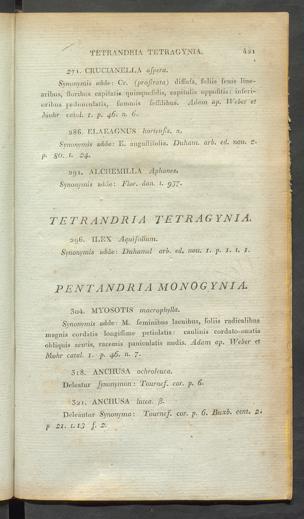 TETRANDRIA TETRAGYNIA. 421
271. CRUCIANELLA aspera.
Synonymis adde: Cr. (prostrata) diffusa, foliis senis line-
aribus, floribus capitatis quinquefidis, capitulis oppositis: inferi-
oribus pedunculatis, summis sessilibus. Adam ap. Weber et
Mohr catal. 1. p. 46. n. 6.
286. ELAEAGNUS hortensis. α.
Synonymis adde: E. angustifolia. Duham. arb. ed. nou. 2.
p. 80. t. 24.
291. ALCHEMILLA Aphanes.
Synonymis adde: Flor. dan. t. 937.
TETRANDRIA TETRAGYNIA.
296. ILEX Aquifolium.
Synonymis adde: Duhamel arb. ed. nou. 1. p. 1. t. 1.
PENTANDRIA MONOGYNIA.
304. MYOSOTIS macrophylla.
Synonymis adde: M. seminibus laeuibus, foliis radicalibus
magnis cordatis longissime petiolatis: caulinis cordato-ouatis
obliquis acutis, racemis paniculatis nudis. Adam ap. Weber et
Mohr catal. 1. p. 46. n. 7.
318. ANCHUSA ochroleuca.
Deleatur synonymon: Tournef. cor. p. 6.
321. ANCHUSA lutea. β.
Deleantur Synonyma: Tournef. cor. p. 6. Buxb. cent. 2.
p 21. t.13 f. 2.